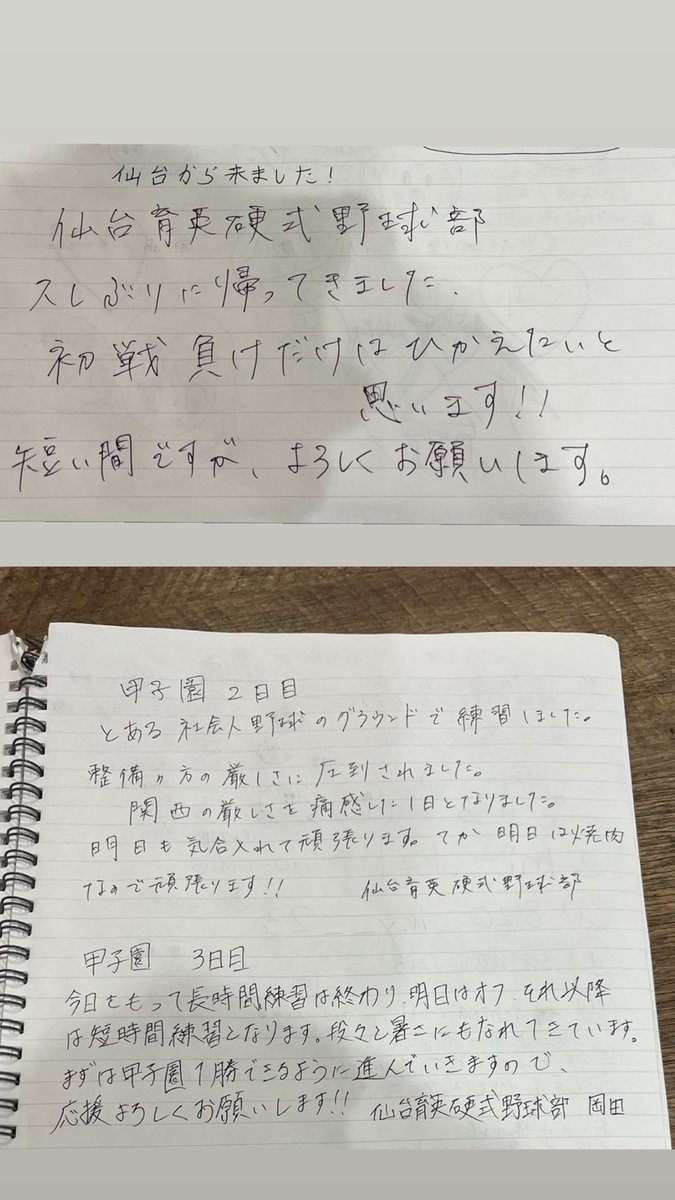 仙台から来ました!
仙台育英硬式野球部
久しぶりに帰ってきました.
初戦負けだけはひかえたいと
思います!!
短い間ですが、よろしくお願いします。
甲子園 2日目
とある社会人野球のグラウンドで練習しました。
整備の方の厳しさに圧倒されました。
関西の厳しさを痛感した1日となりました。
明日も気合入れて頑張ります。てか明日は焼肉
なので頑張ります!! 仙台育英硬式野球部
甲子園 3日目
今日をもって長時間練習は終わり、明日はオフ、それ以降
は短時間練習となります。段々と暑さにもなれてきています。
まずは甲子園1勝できるように進んでいきますので、
応援よろしくお願いします!! 仙台育英硬式野球部 岡田